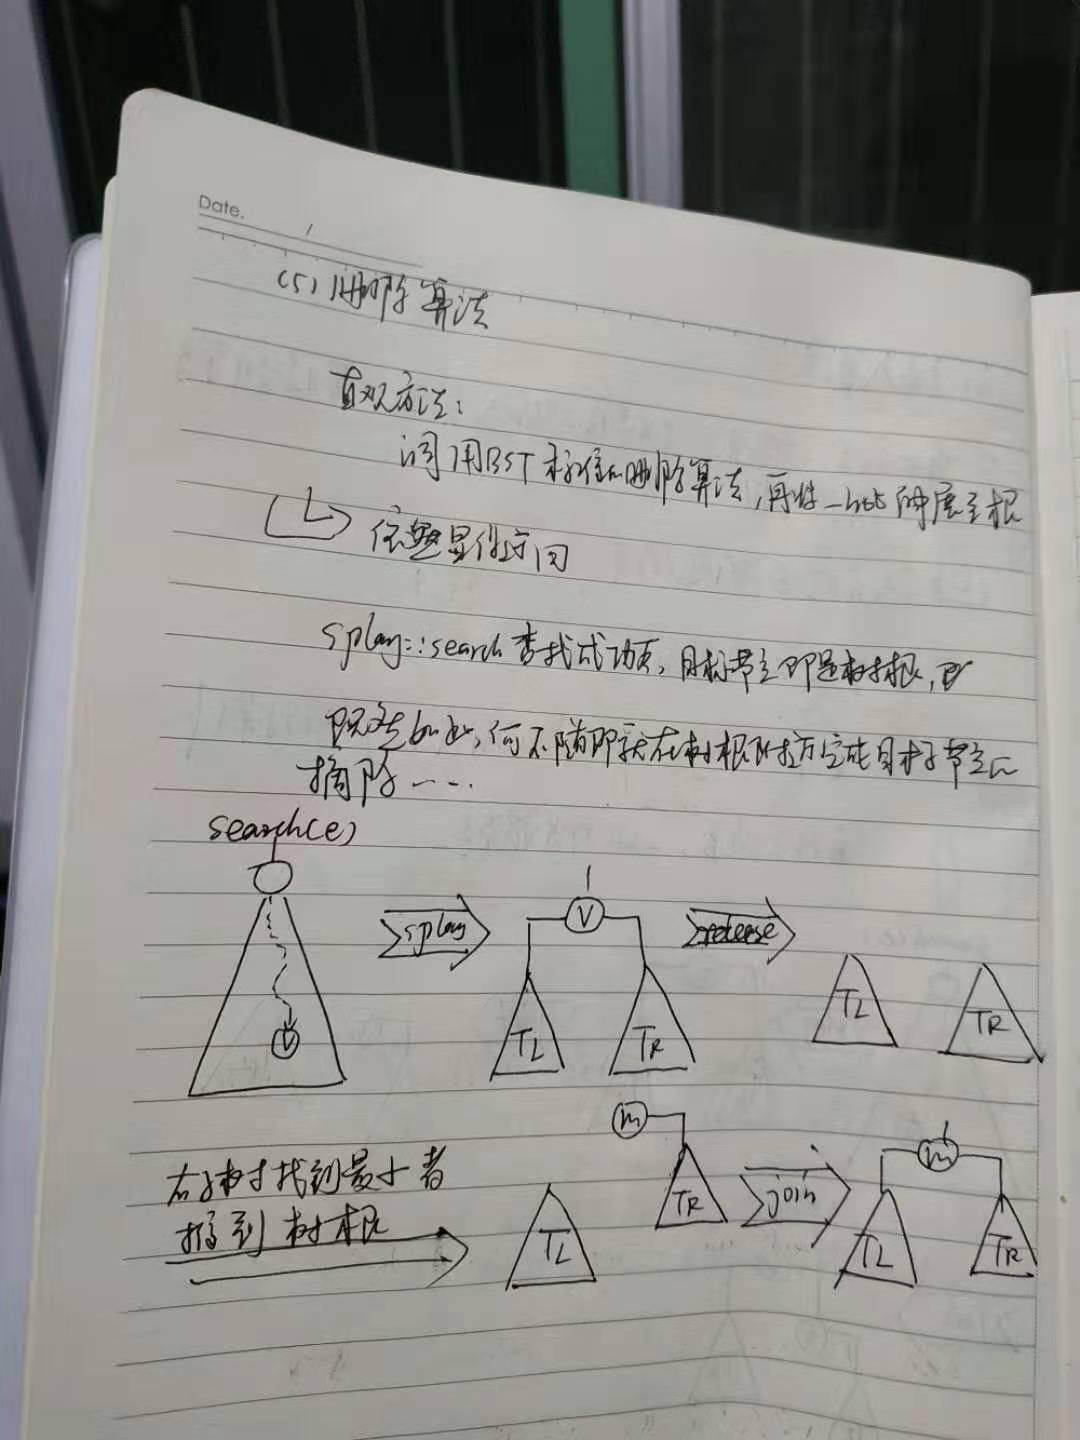 Date.
(5) 删除算法
直观方法:
调用BST标准的删除算法,再将_hot伸展至根
splay::search查找成功后,目标节点即是树根,
既然如此,何不随即就在树根附近完成目标节点的
摘除……
search(e)
splay
V
release
V
TL
TR
TL
TR
右树找到最小者
推到树根
m
TL
TR
join
m
TL
TR